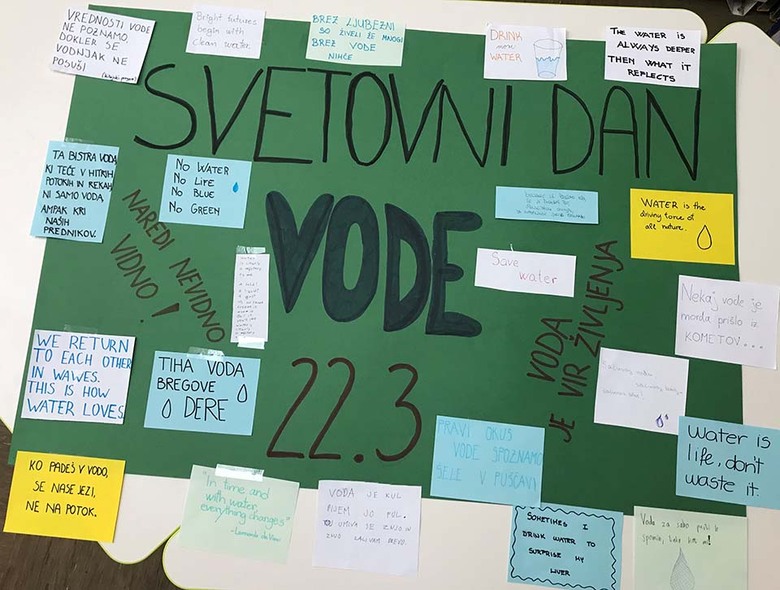 VREDNOSTI VODE
NE POZNAMO,
DOKLER SE
VODNJAK NE
POSUŠI
Bright futures
begin with
clean water.
BREZ LJUBEZNI
SO ŽIVELI ŽE MNOGI
BREZ VODE
NIHČE
DRINK
more
WATER
THE WATER IS
ALWAYS DEEPER
THEN WHAT IT
REFLECTS
SVETOVNI DAN
VODE
22.3
TA BISTRA VODA,
KI TEČE V HITRIH
POTOKIH IN REKAH,
NI SAMO VODA,
AMPAK KRI
NAŠIH
PREDNIKOV.
NO WATER
NO LIFE
NO BLUE
NO GREEN
NAREDI NEVIDNO
VIDNO!
WATER is the
driving force of
all nature.
Save
water
VODA
JE VIR ŽIVLJENJA
Nekaj vode je
morda prišlo iz
KOMETOV...
WE RETURN
TO EACH OTHER
IN WAWES.
THIS IS HOW
WATER LOVES
TIHA VODA
BREGOVE
DERE
PRAVI OKUS
VODE SPOZNAMO
ŠELE V PUŠČAVI
Water is
life, don't
waste it.
KO PADEŠ V VODO,
SE NASE JEZI,
NE NA POTOK.
"In time and
with water,
everything changes"
-Leonardo da Vinci
VODA JE KUL
PIJEM JO FUL.
UMIVA SE Z NJO IN
ZALIVAM DREVO.
SOMETIMES I
DRINK WATER TO
SURPRISE MY
LIVER
Voda za sabo pusti le